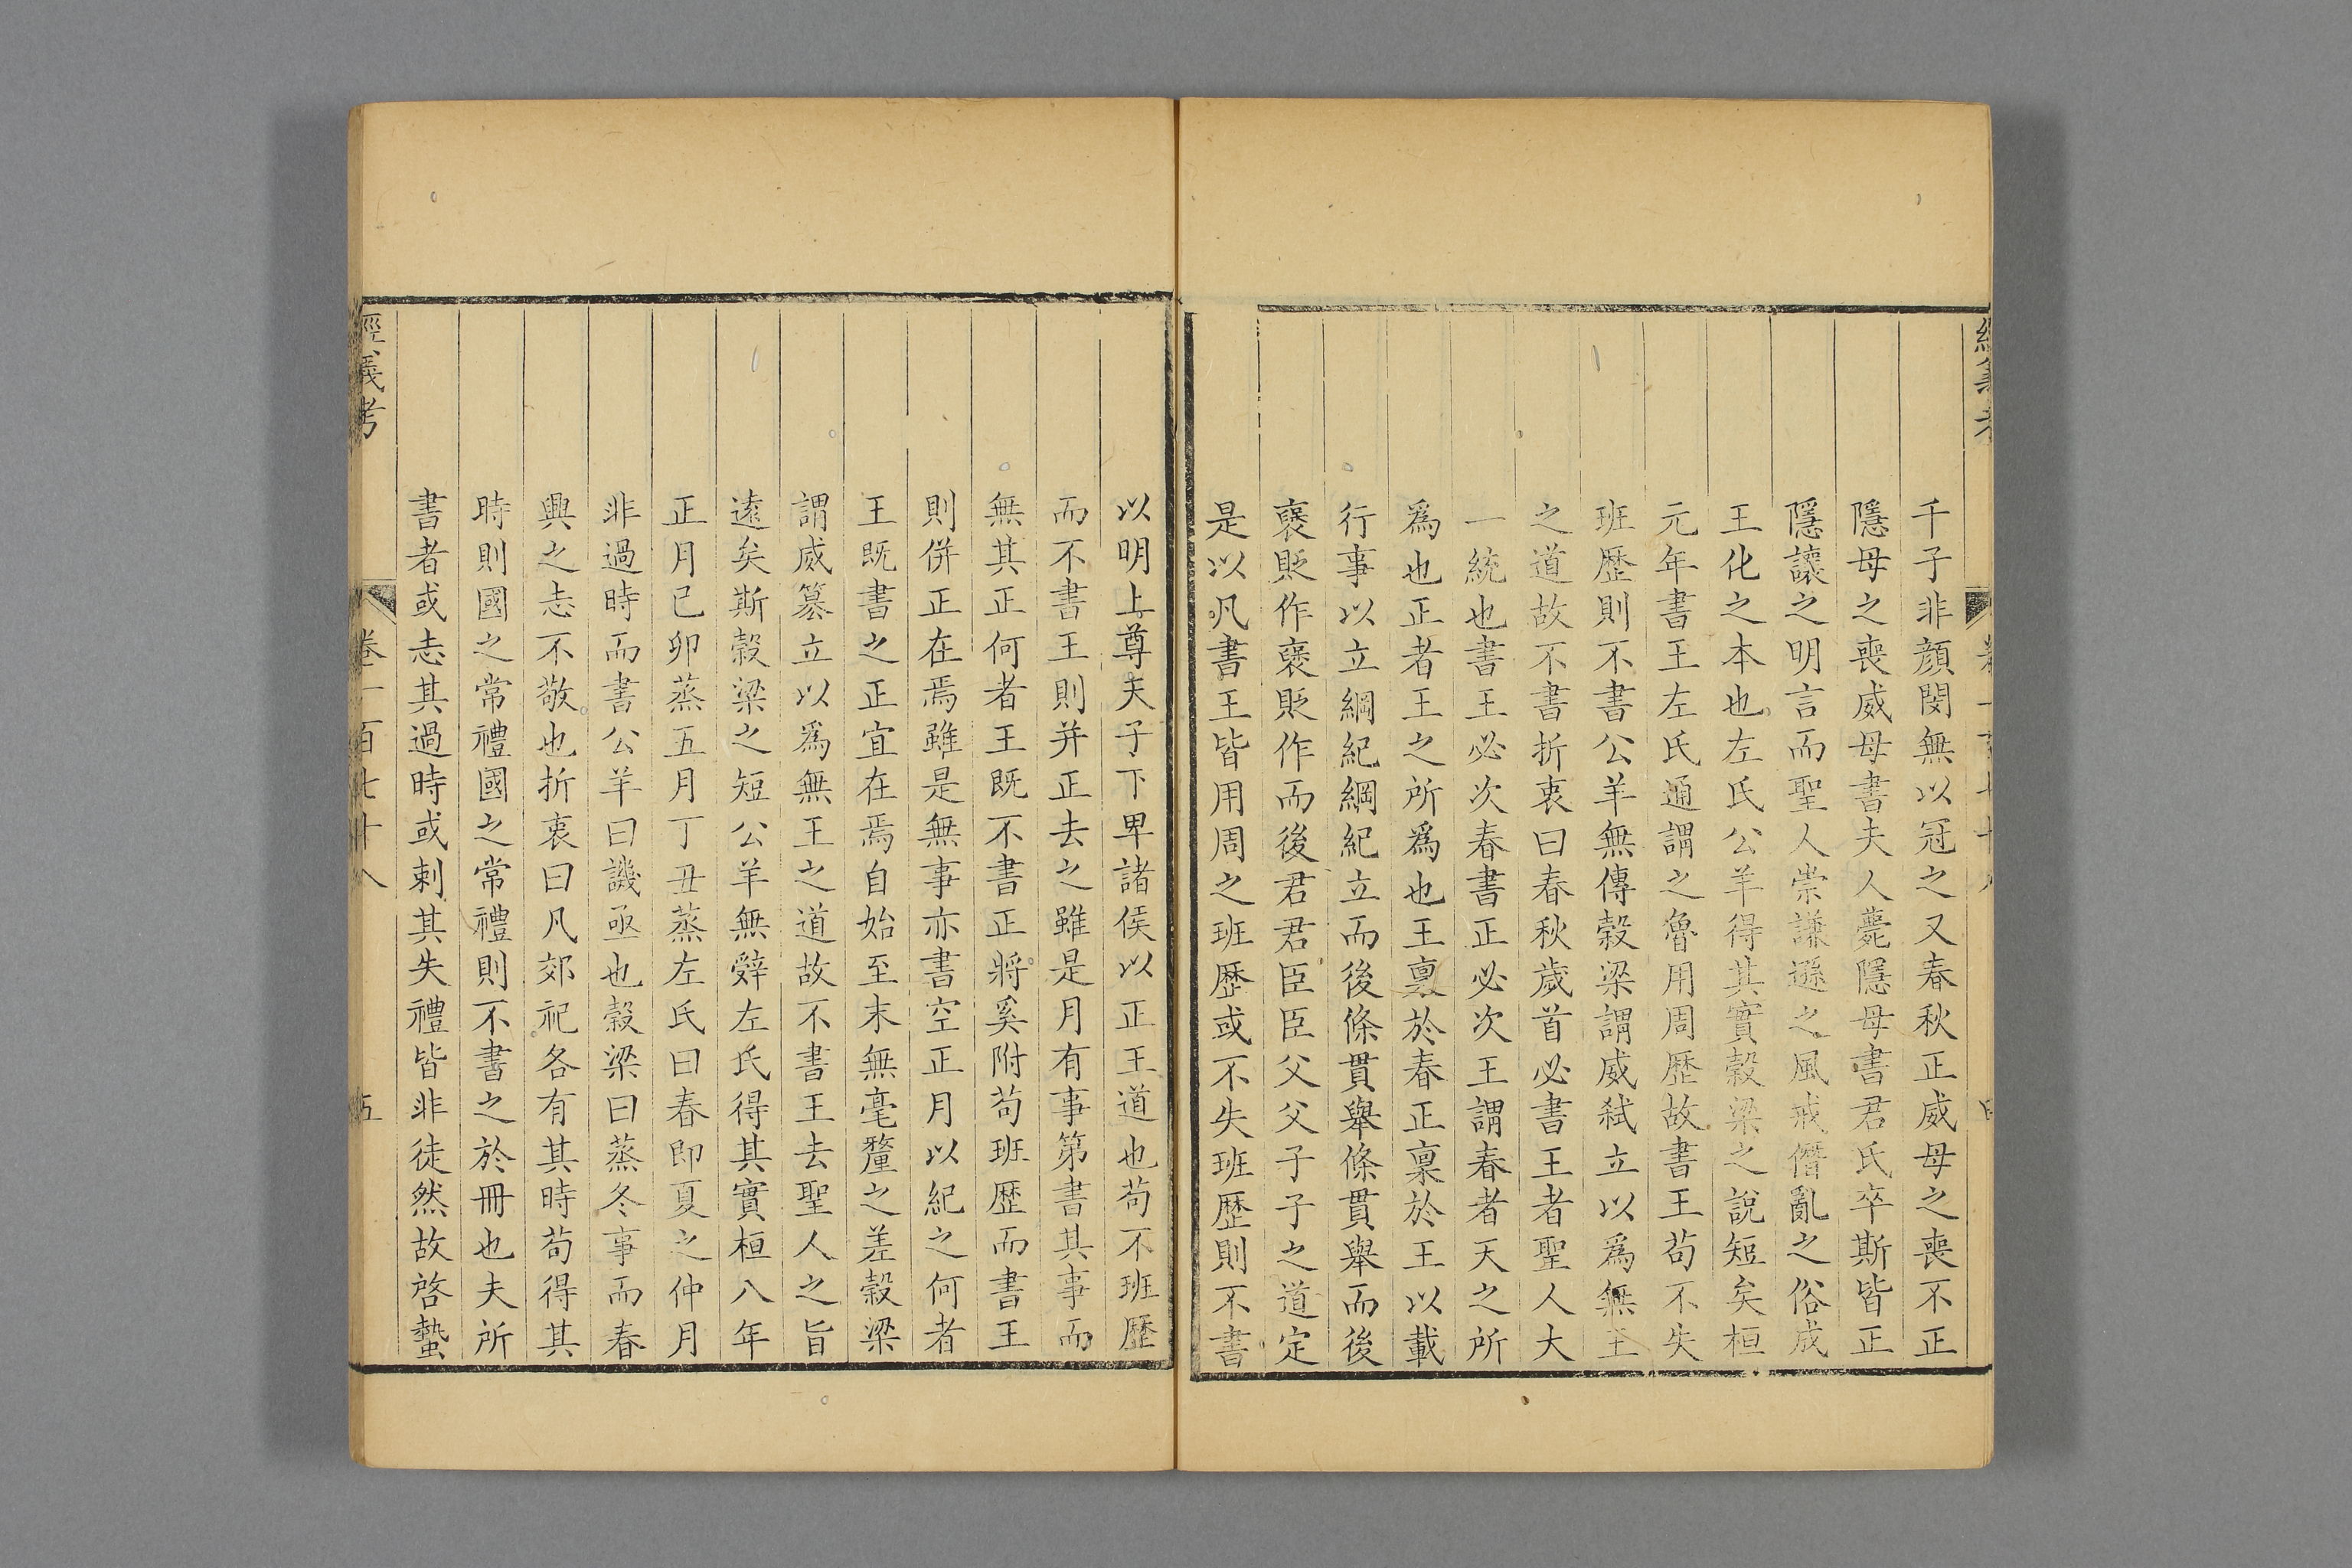 千子非顔閔無以冠之又春秋正威母之喪不正
隱母之喪威母書夫人薨隱母書君氏卒斯皆正
隱讓之明言而聖人崇謙遜之風戒僭亂之俗成
王化之本也左氏公羊得其實穀梁之說短矣桓
元年書王左氏通謂之魯用周歷故書王苟不失
班歷則不書公羊無傳穀梁謂威弒立以爲無王
之道故不書折衷曰春秋歲首必書王者聖人大
一統也書王必次春書正必次王謂春者天之所
爲也正者王之所爲也王稟於春正稟於王以載
行事以立綱紀綱紀立而後條貫舉條貫舉而後
襃貶作襃貶作而後君君臣臣父父子子之道定
是以凡書王皆用周之班歷或不失班歷則不書
以明上尊天子下卑諸侯以正王道也苟不班歷
而不書王則并正去之雖是月有事第書其事而
無其正何者王既不書正將奚附苟班歷而書王
則併正在焉雖是無事亦書空正月以紀之何者
王既書之正宜在焉自始至末無毫釐之差穀梁
謂威篡立以爲無王之道故不書王去聖人之旨
遠矣斯穀梁之短公羊無辭左氏得其實桓八年
正月己卯蒸五月丁丑蒸左氏曰春即夏之仲月
非過時而書公羊曰譏亟也穀梁曰蒸冬事而春
興之志不敬也折衷曰凡郊祀各有其時苟得其
時則國之常禮國之常禮則不書之於冊也夫所
書者或志其過時或刺其失禮皆非徒然故啓蟄
經義考
卷一百七十八
五